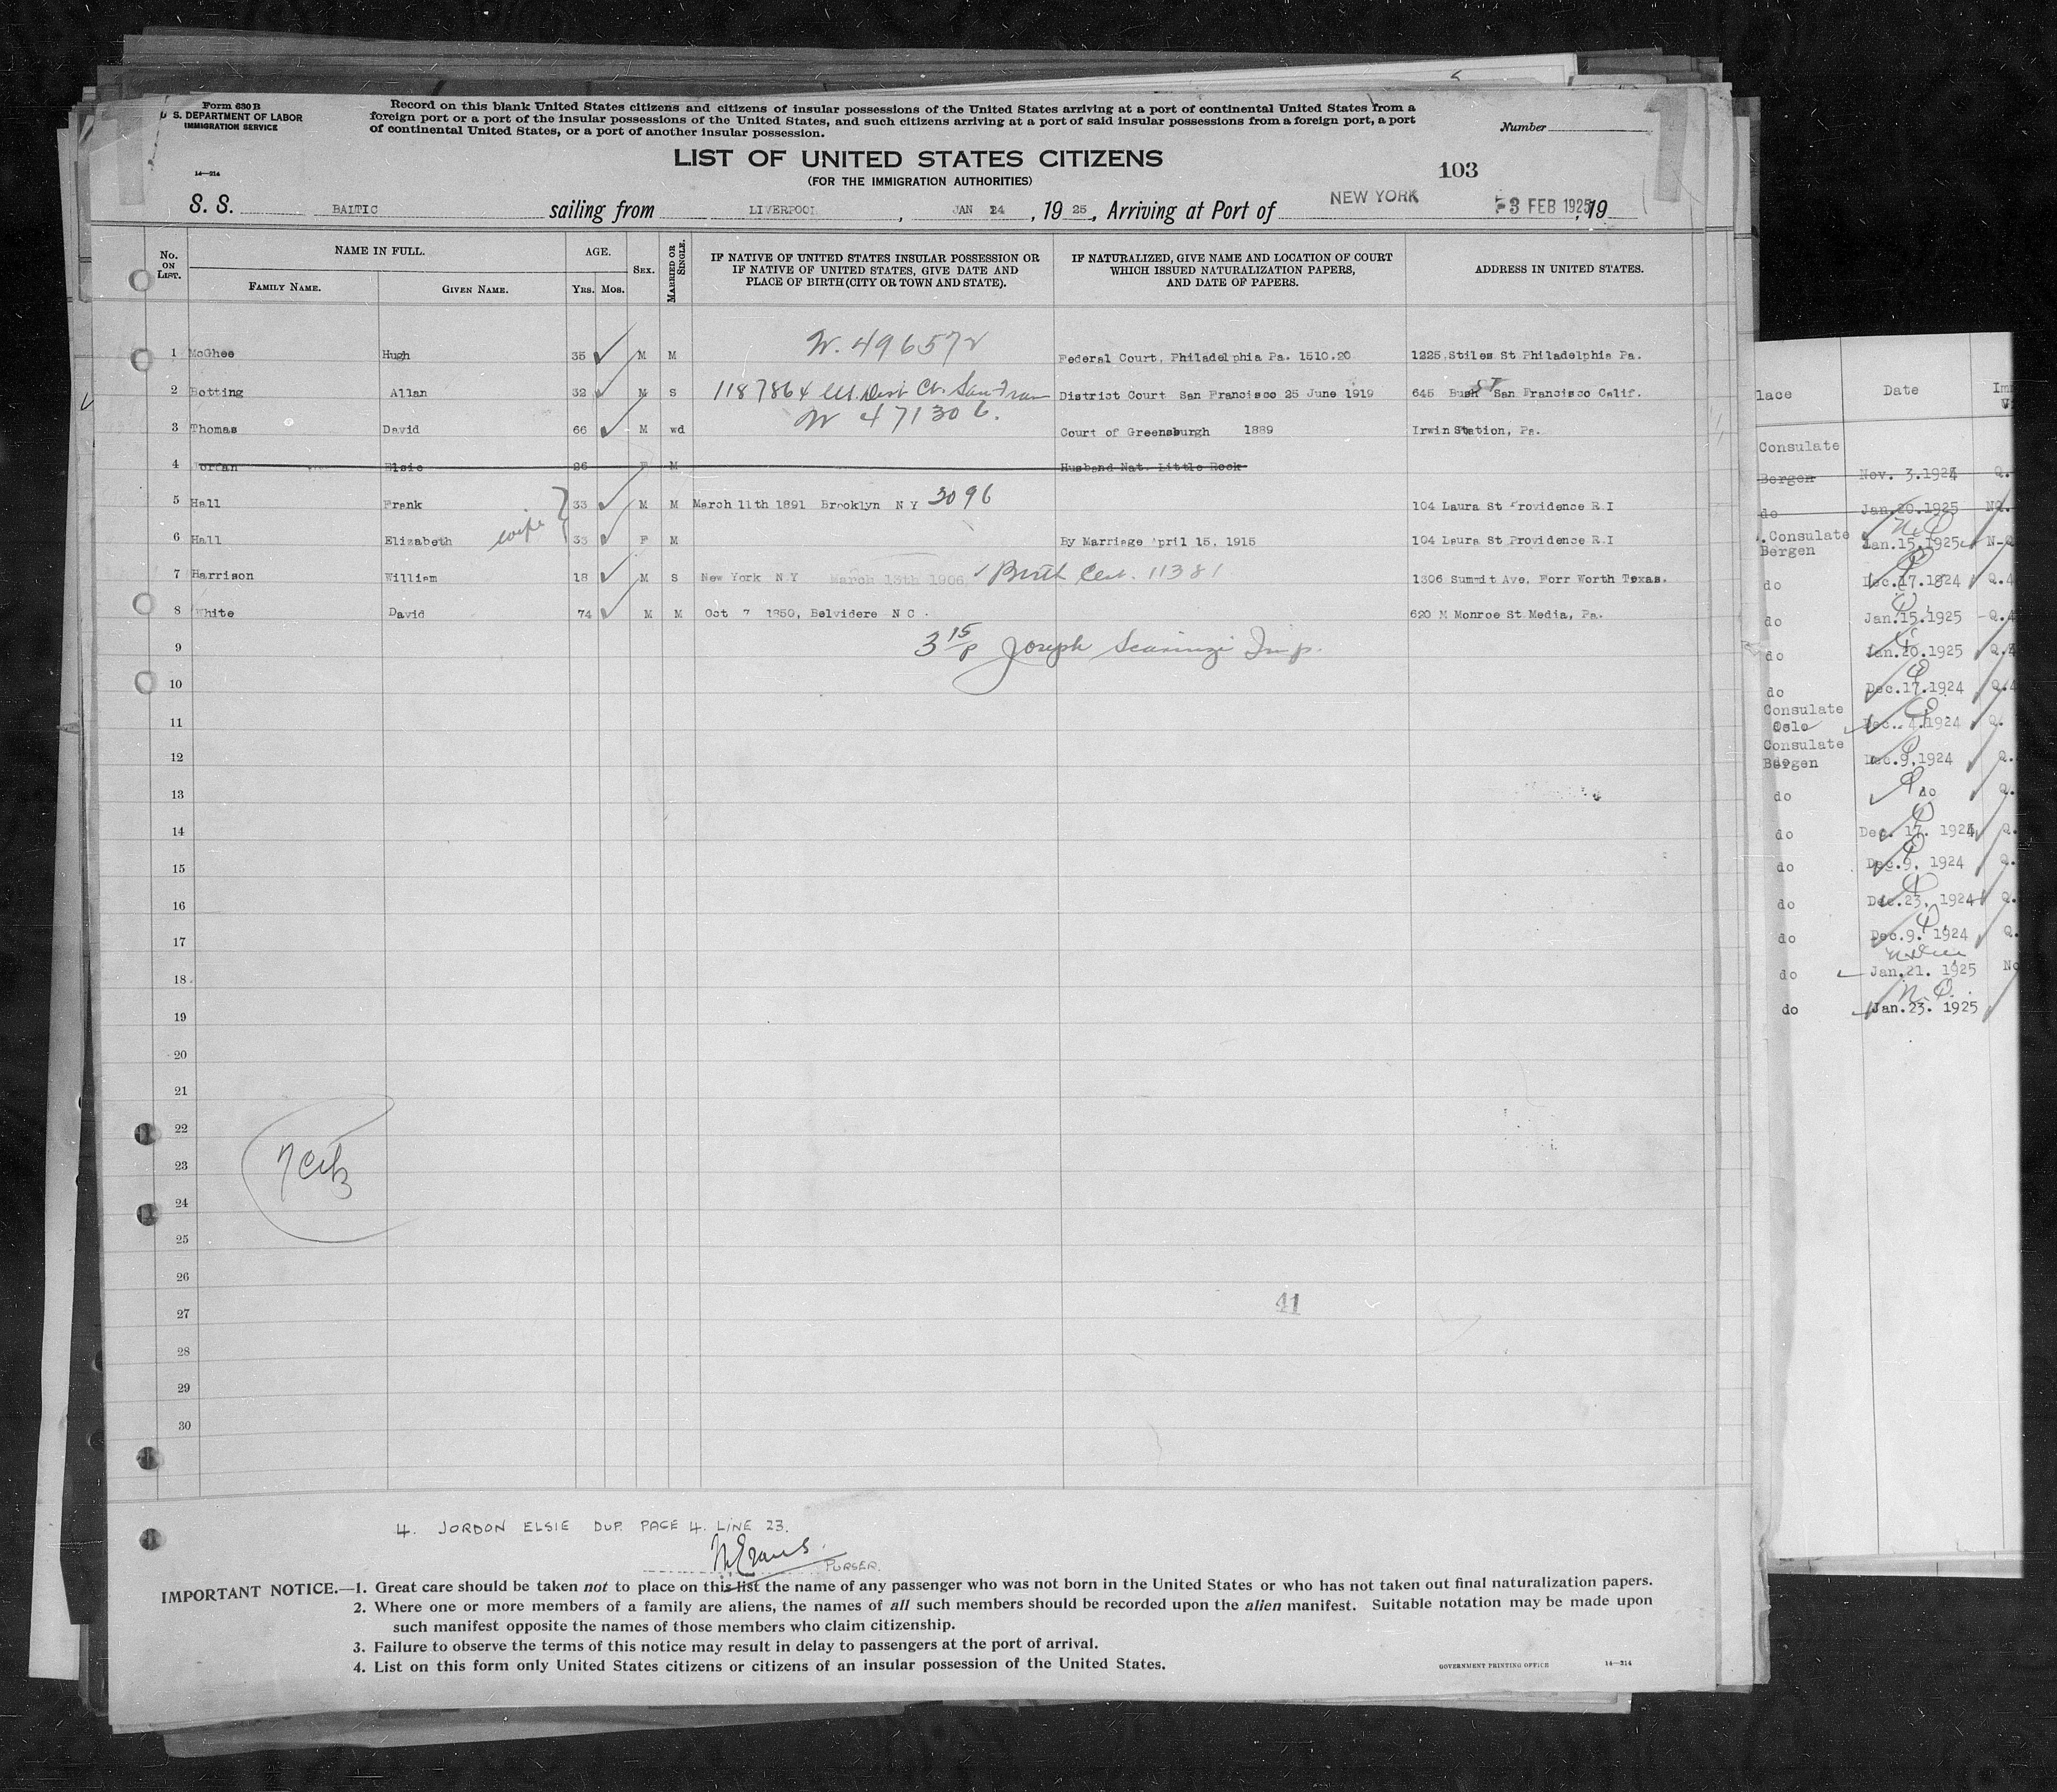 Form 630 B
U. S. DEPARTMENT OF LABOR
IMMIGRATION SERVICE
14—214
Record on this blank United States citizens and citizens of insular possessions of the United States arriving at a port of continental United States from a
foreign port or a port of the insular possessions of the United States, and such citizens arriving at a port of said insular possessions from a foreign port, a port
of continental United States, or a port of another insular possession.
Number
LIST OF UNITED STATES CITIZENS
(FOR THE IMMIGRATION AUTHORITIES)
103
S. S. BALTIC sailing from LIVERPOOL, JAN 24, 1925, Arriving at Port of NEW YORK 3 FEB 1925, 19
No. ON LIST.
NAME IN FULL.
FAMILY NAME.
GIVEN NAME.
AGE.
YRS. MOS.
SEX.
MARRIED OR SINGLE.
IF NATIVE OF UNITED STATES INSULAR POSSESSION OR
IF NATIVE OF UNITED STATES, GIVE DATE AND
PLACE OF BIRTH (CITY OR TOWN AND STATE).
IF NATURALIZED, GIVE NAME AND LOCATION OF COURT
WHICH ISSUED NATURALIZATION PAPERS,
AND DATE OF PAPERS.
ADDRESS IN UNITED STATES.
1 McGhee Hugh 35 M M W. 496572 Federal Court, Philadelphia Pa. 1510.20 1225 Stiles St Philadelphia Pa.
2 Botting Allan 32 M S 1187864 Dist Ct. San Fran District Court San Francisco 25 June 1919 645 Bush ST San Francisco Calif.
3 Thomas David 66 M wd W 471306. Court of Greensburgh 1889 Irwin Station, Pa.
4 Jordan Elsie 26 F M Husband Nat. Little Rock
5 Hall Frank 33 M M March 11th 1891 Brooklyn N Y 3096 104 Laura St Providence R.I
6 Hall Elizabeth wife 33 F M By Marriage April 15, 1915 104 Laura St Providence R.I
7 Harrison William 18 M S New York N Y March 13th 1906 Birth Cert. 11381 1306 Summit Ave, Forr Worth Texas.
8 White David 74 M M Oct 7 1850, Belvidere N C. 620 M Monroe St Media, Pa.
9 3 15 p Joseph Insp.
10
11
12
13
14
15
16
17
18
19
20
21
22
23
24
25
26
27
28
29
30
7 Citz
41
4. JORDON ELSIE DUP. PAGE 4. LINE 23.
Evans
PURSER.
IMPORTANT NOTICE.—1. Great care should be taken not to place on this list the name of any passenger who was not born in the United States or who has not taken out final naturalization papers.
2. Where one or more members of a family are aliens, the names of all such members should be recorded upon the alien manifest. Suitable notation may be made upon
such manifest opposite the names of those members who claim citizenship.
3. Failure to observe the terms of this notice may result in delay to passengers at the port of arrival.
4. List on this form only United States citizens or citizens of an insular possession of the United States.
GOVERNMENT PRINTING OFFICE
14—214
lace Date
Consulate
Bergen Nov. 3.1924 Q.
do Jan.20.1925 NQ.
Consulate
Bergen Jan.15.1925 N-Q
do Dec.17.1924 Q.4
do Jan.15.1925 Q.4
do Jan.20.1925 Q.
do Dec.17.1924 Q.4
Consulate
Oslo Dec. 4.1924 Q.
Consulate
Bergen Dec.9.1924 Q.
do do Q.
do Dec. 17. 1924 Q.
do Dec.9. 1924 Q.
do Dec.23. 1924 Q.
do Dec.9. 1924 Q.
do Jan.21. 1925 No
do Jan.23. 1925